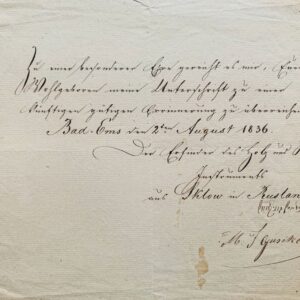 Zu einer besonderen Ehre gereicht es mir, Euer
Wohlgeboren meine Unterschrift zu einer
künftigen gütigen Erinnerung zu überreichen
Bad-Ems den 2ten August 1836.
Der Erfinder des Holz und
Instruments
aus Sklow in Rusland
M. J. Gusikow